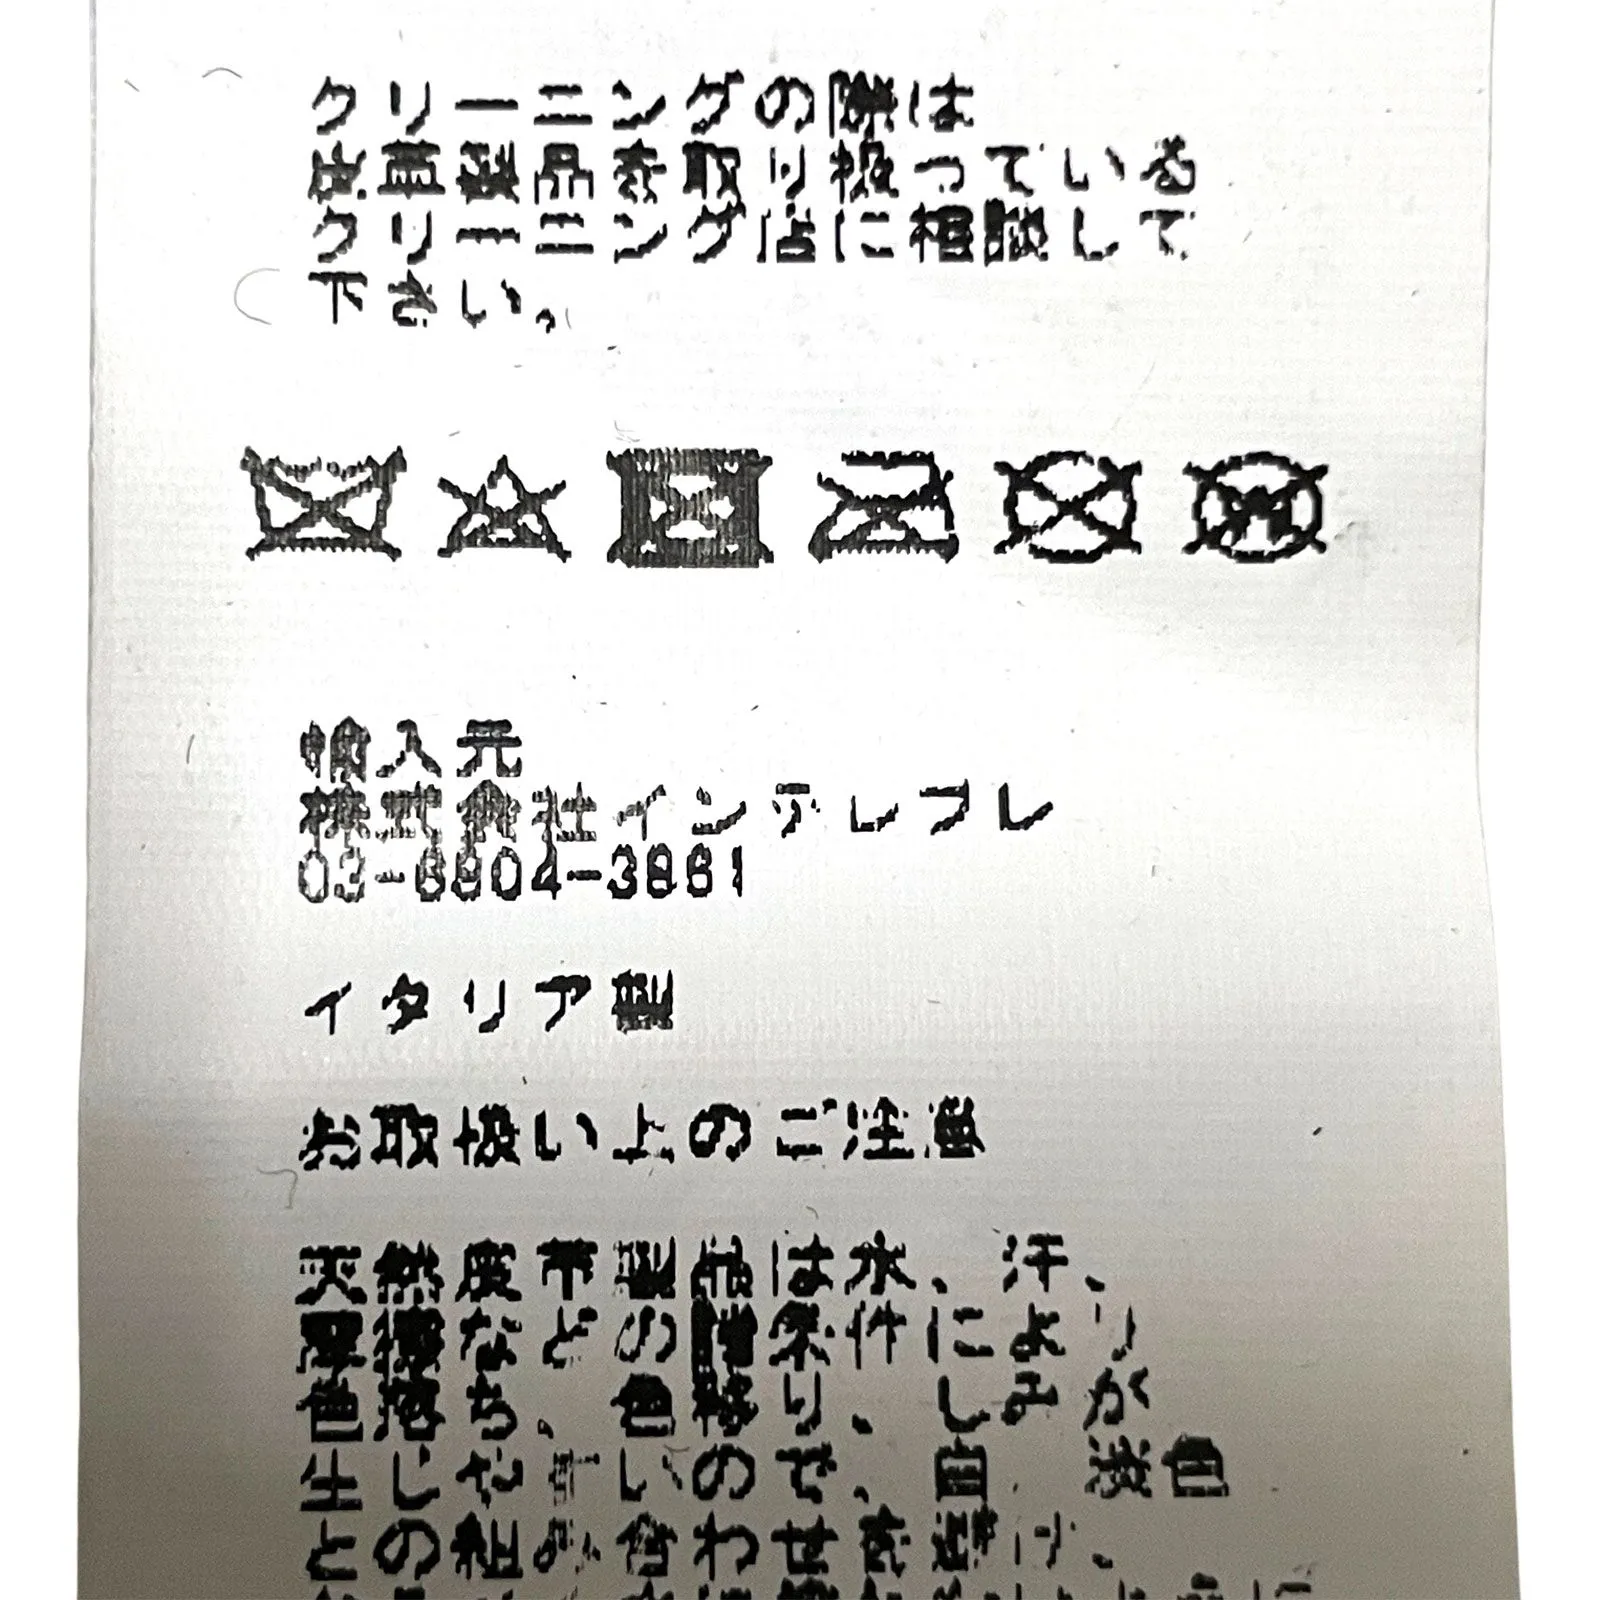 クリーニングの際は
皮革製品を取り扱っている
クリーニング店に相談して
下さい。
輸入元
株式会社インテレプレ
03-6804-3861
イタリア製
お取扱い上のご注意
天然皮革製品は水、汗、
摩擦などの諸条件により
色落ち、色移り、しみが
生じやすいので、白、淡色
との組み合わせを避け、